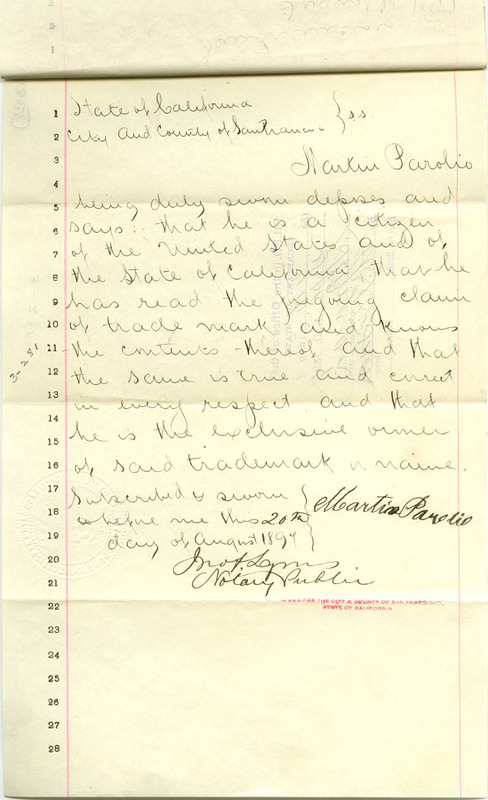 State of California } s.s.
City and County of San Francisco
Martin Parolio
being duly sworn deposes and
says: that he is a citizen
of the United States and of
the State of California that he
has read the fregoing claim
of trade mark and knows
the contents thereof and that
the same is true and correct
in every respect and that
he is the exclusive owner
of said trademark or name.
Subscribed & sworn } Martin Parolio
to before me this 20th
day of August 1897
Notary Public
IN AND FOR THE CITY & COUNTY OF SAN FRANCISCO,
STATE OF CALIFORNIA
3-281
1
2
3
4
5
6
7
8
9
10
11
12
13
14
15
16
17
18
19
20
21
22
23
24
25
26
27
28